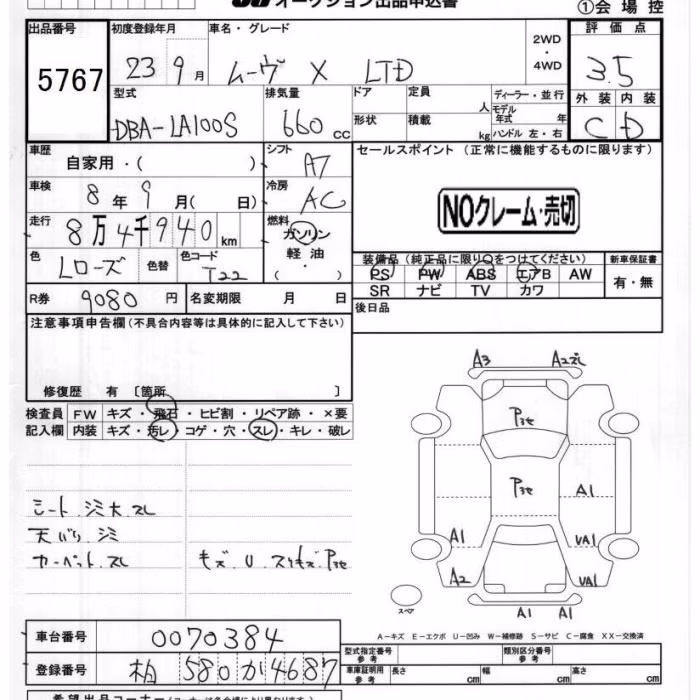 オークション出品申込書
①会場控
出品番号
5767
初度登録年月
23 9月
車名・グレード
ムーヴ X LTD
2WD
・
4WD
評価点
3.5
型式
DBA-LA100S
排気量
660cc
ドア
定員
人
形状
積載
kg
ディーラー・並行
モデル年式 年
ハンドル 左・右
外装
内装
C
D
車歴
自家用・( )
シフト
A7
車検
8年9月( 日)
冷房
AC
走行
8万4千940km
燃料
ガソリン
軽油
( )
色
Lローズ
色替
色コード
T22
R券
9080円
名変期限 月 日
セールスポイント (正常に機能するものに限ります)
NOクレーム・売切
装備品 (純正品に限り○をつけてください)
新車保証書
PS PW ABS エアB AW
SR ナビ TV カワ
有・無
後日品
注意事項申告欄(不具合内容等は具体的に記入して下さい)
修復歴 有 〔箇所 〕
検査員
記入欄
FW キズ・飛石・ヒビ割・リペア跡・×要
内装 キズ・汚レ・コゲ・穴・スレ・キレ・破レ
シート.シミ大.スレ
天バリ.シミ
カーペット.スレ
キズ.U.スリキズ.Pヨセ
A3
A2ズレ
Pヨセ
Pヨセ
A1
A1
VA1
A2
VA1
A1
A1
スペア
A-キズ E-エクボ U-凹み W-補修跡 S-サビ C-腐食 XX-交換済
車台番号
0070384
登録番号
柏 580 か 4687
型式指定番号
参考
類別区分番号
参考
車庫証明用
参考
長さ cm
幅 cm
高さ cm
希望出品コーナー